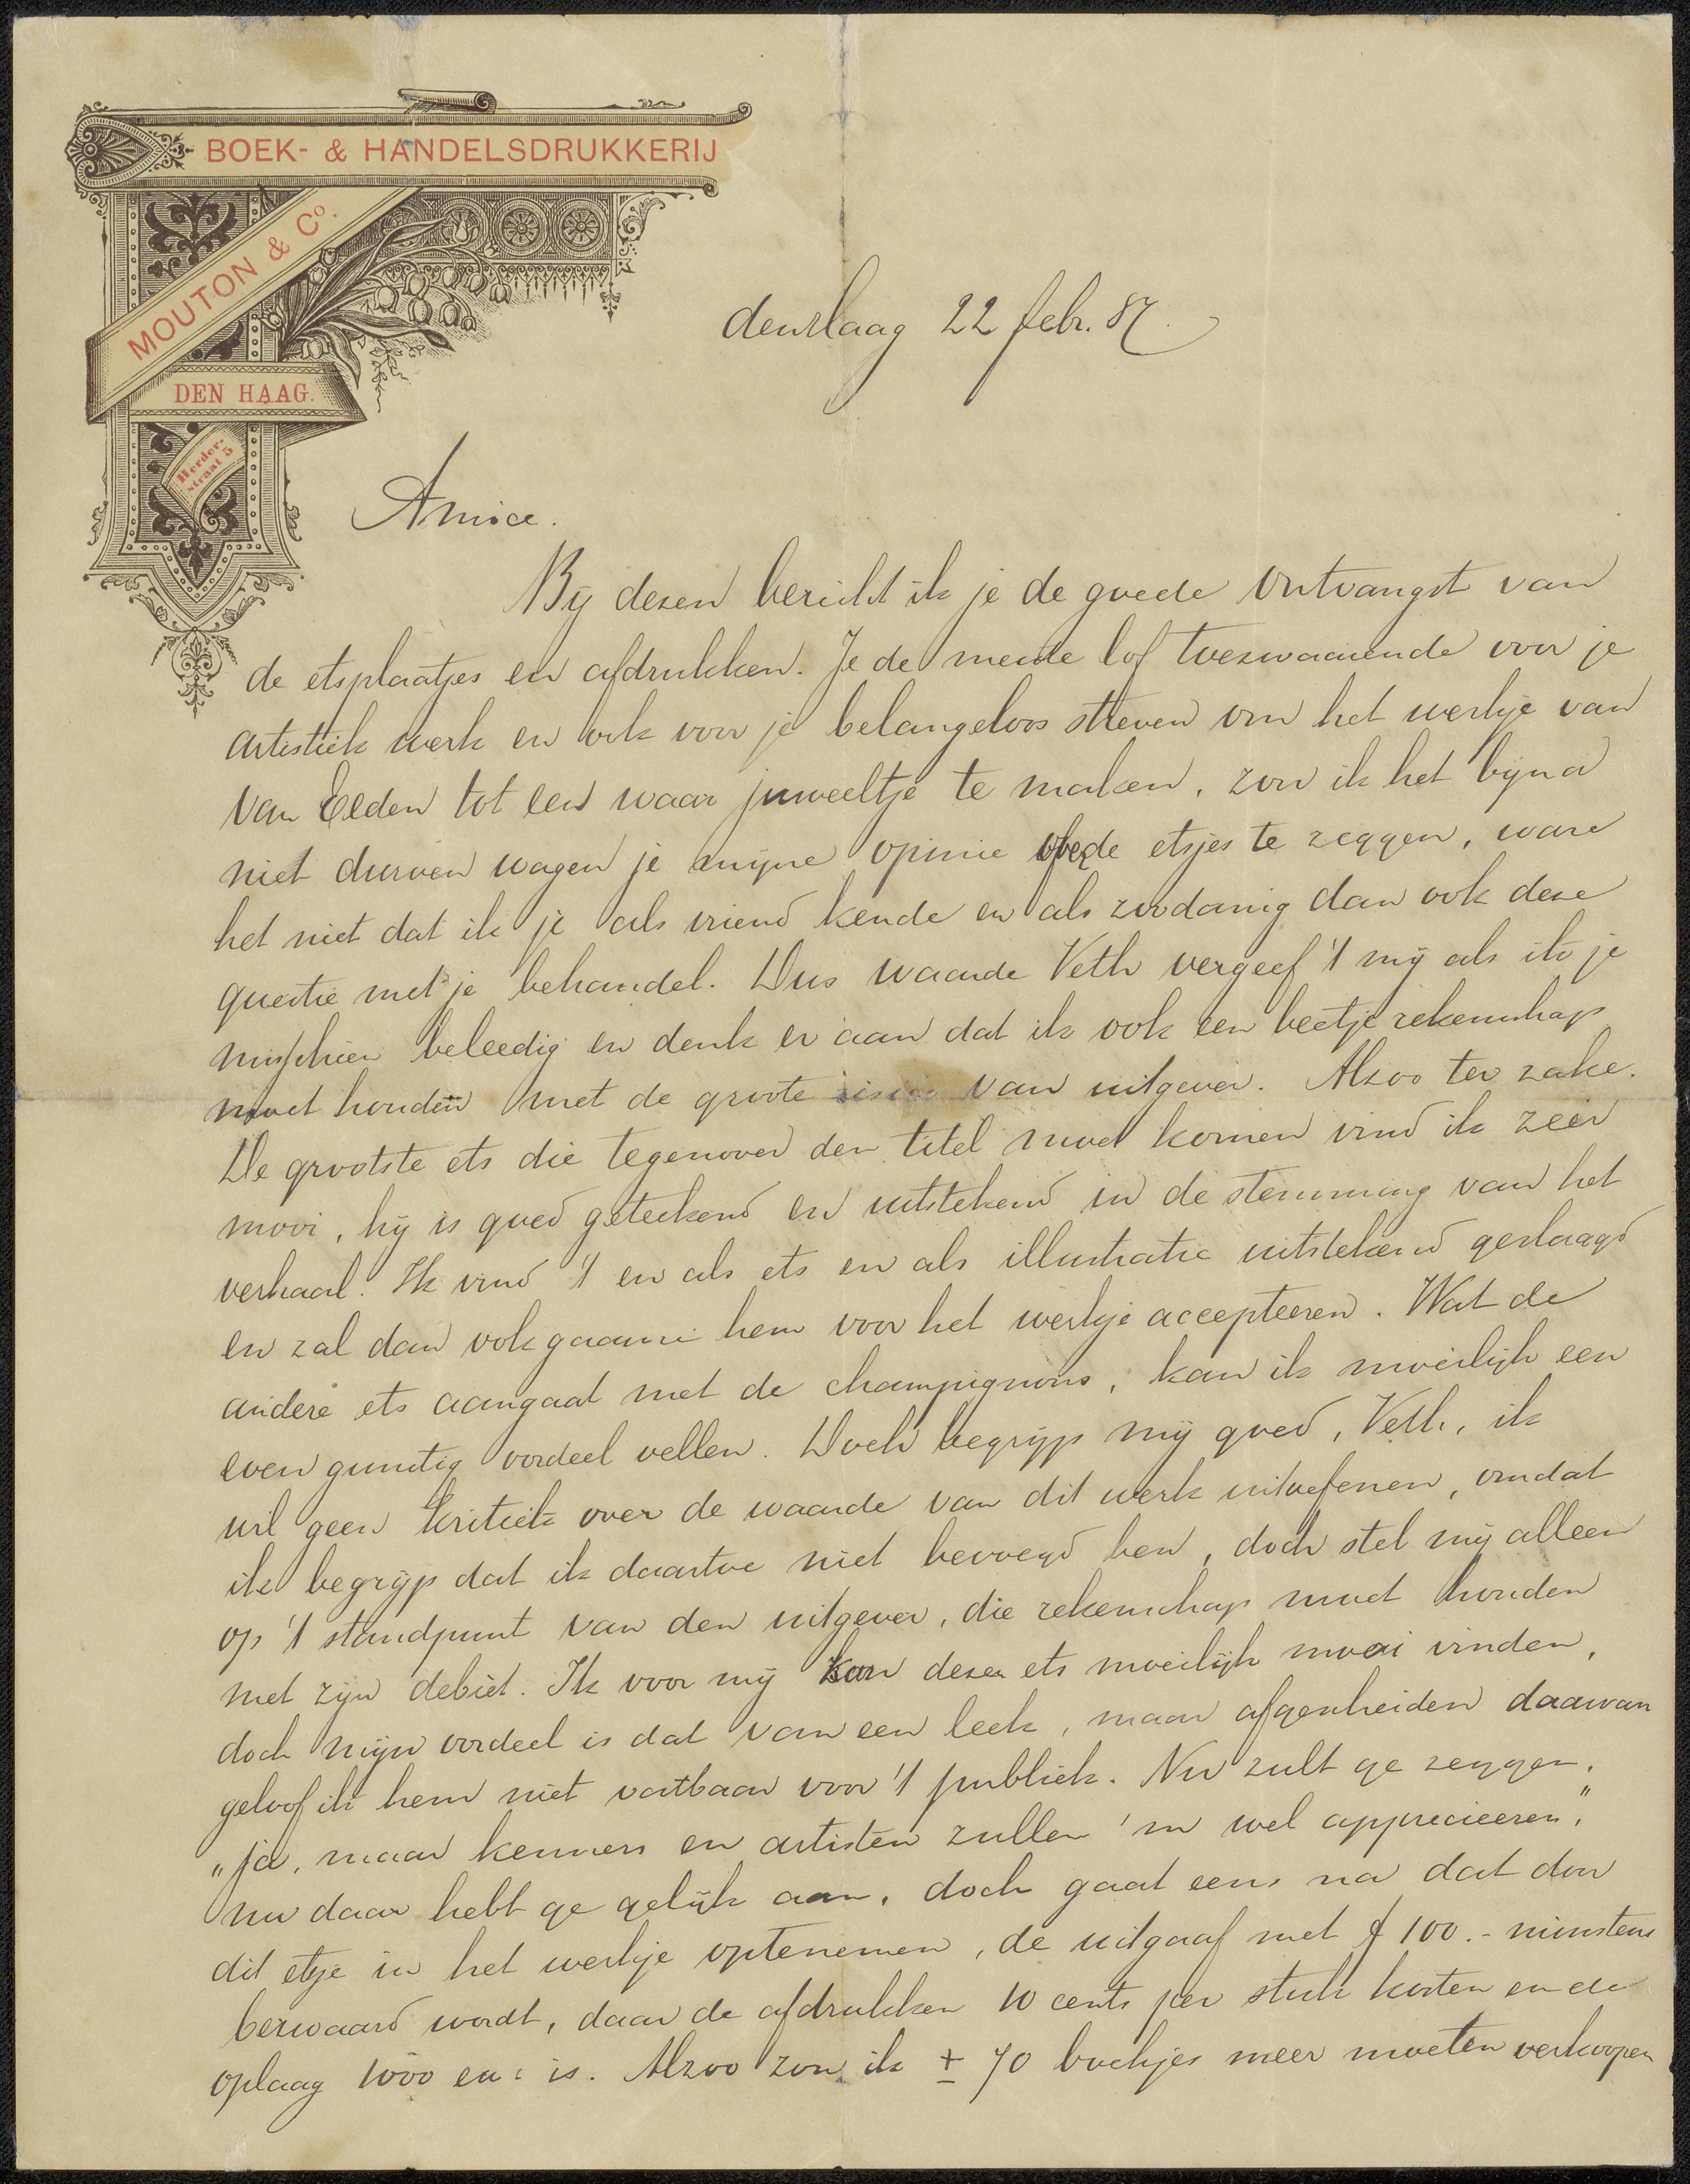 BOEK- & HANDELSDRUKKERIJ
MOUTON & Co.
DEN HAAG.
Herder-
straat 5
denHaag 22 febr. 87.
Amice.
By dezen bericht ik je de goede ontvangst van
de etsplaatjes en afdrukken. Je de meeste lof toezwaaiende voor je
artistiek werk en ook voor je belangeloos streven om het werkje van
Van Eeden tot een waar juweeltje te maken, zou ik het bijna
niet durven wagen je mijne opinie over de etsjes te zeggen, ware
het niet dat ik je als vriend kende en als zoodanig dan ook deze
questie met je behandel. Dus waarde Veth vergeef 't mij als ik je
misschien beleedig en denk er aan dat ik ook een beetje rekenschap
moet houden met de groote van uitgever. Alzoo ter zake.
De grootste ets die tegenover den titel moet komen vind ik zeer
mooi, hij is goed geteekend en uitstekend in de stemming van het
verhaal. Ik vind 't en als ets en als illustratie uitstekend geslaagd
en zal dan ook gaarne hem voor het werkje accepteeren. Wat de
andere ets aangaat met de champignons, kan ik moeilijk een
even gunstig oordeel vellen. Doch begrijp mij goed, Veth, ik
wil geen kritiek over de waarde van dit werk uitoefenen, omdat
ik begrijp dat ik daartoe niet bevoegd ben, doch stel mij alleen
op 't standpunt van den uitgever, die rekenschap moet houden
met zijn debiet. Ik voor mij kan deze ets moeilijk mooi vinden,
doch mijn oordeel is dat van een leek, maar afgescheiden daarvan
geloof ik hem niet vatbaar voor 't publiek. Nu zult ge zeggen,
„ja, maar kenners en artisten zullen 'm wel apprecieeren,"
nu daar hebt ge gelijk aan, doch gaat eens na dat door
dit etsje in het werkje optenemen, de uitgaaf met f 100.- minstens
bezwaard wordt, daar de afdrukken 10 cents per stuk kosten en de
oplaag 1000 ex: is. Alzoo zou ik ± 70 boekjes meer moeten verkoopen